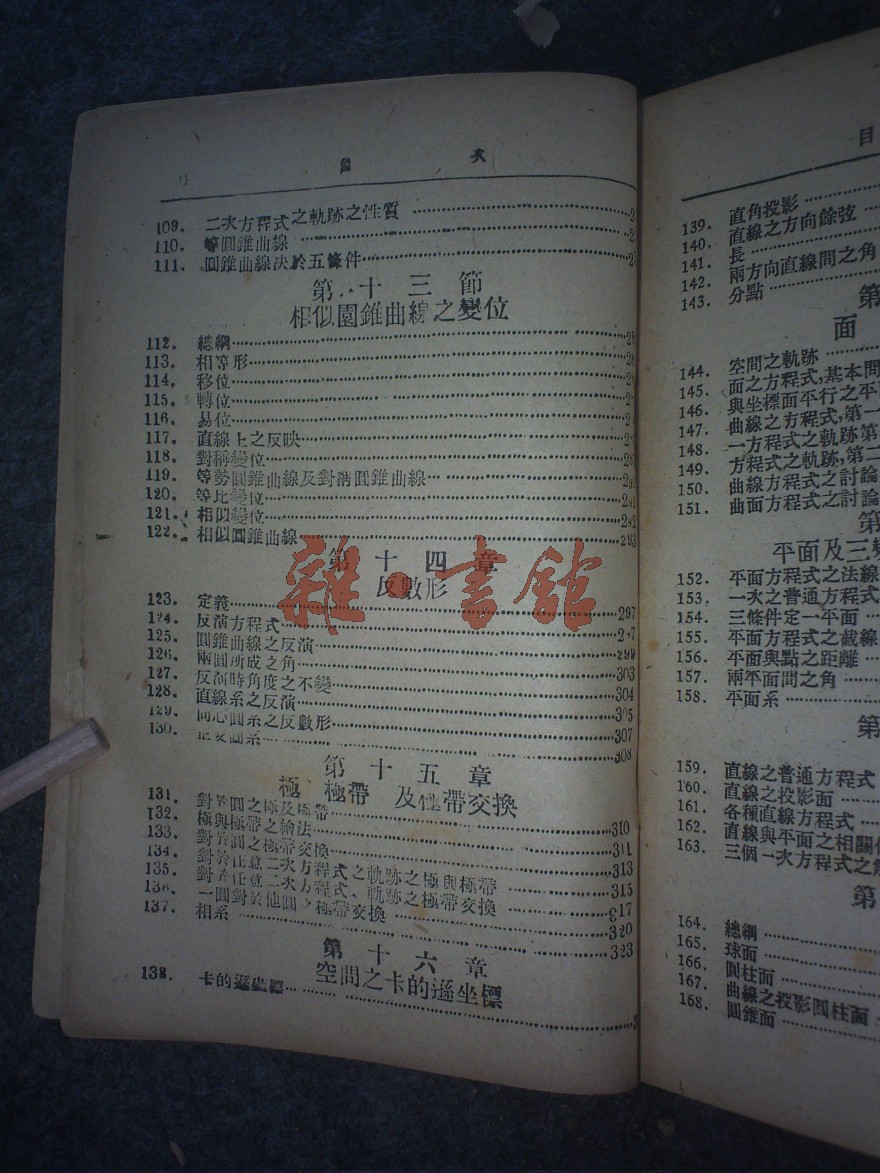 目 次
109. 二次方程式之軌跡之性質
110. 等圓錐曲線
111. 圓錐曲線決於五條件
第十三節
相似圓錐曲線之變位
112. 總綱
113. 相等形
114. 移位
115. 轉位
116. 易位
117. 直線上之反映
118. 對稱變位
119. 等勢圓錐曲線及對稱圓錐曲線
120. 等比變位 291
121. 相似變位 292
122. 相似圓錐曲線 293
第十四章
反數形
雜·書館
123. 定義 297
124. 反演方程式
125. 圓錐曲線之反演 299
126. 兩圓所成之角 303
127. 反演時角度之不變 304
128. 直線系之反演 305
129. 同心圓系之反數形 307
130. 308
第十五章
極 極帶 及性帶交換
131. 對於圓之極及極帶 310
132. 極與極帶之繪法 311
133. 對於圓之極帶交換 313
134. 對於任意二次方程式之軌跡之極與極帶 315
135. 對於任意二次方程式之軌跡之極帶交換 317
136. 一圓對於他圓之極帶交換 320
137. 相系 323
第十六章
空間之卡的遜坐標
138. 卡的遜坐標
目
139. 直角投影
140. 直線之方向餘弦
141. 長
142. 兩方向直線間之角
143. 分點
第
面
144. 空間之軌跡
145. 面之方程式,基本問
146. 與坐標面平行之平
147. 曲線之方程式,第一
148. 一方程式之軌跡第
149. 方程式之軌跡,第二
150. 曲線方程式之討論
151. 曲面方程式之討論
第
平面及三
152. 平面方程式之法線
153. 一次之普通方程式
154. 三條件定一平面
155. 平面方程式之截線
156. 平面與點之距離
157. 兩平面間之角
158. 平面系
第
159. 直線之普通方程式
160. 直線之投影面
161. 各種直線方程式
162. 直線與平面之相關
163. 三個一次方程式之
第
164. 總綱
165. 球面
166. 圓柱面
167. 曲線之投影圓柱面
168. 圓錐面